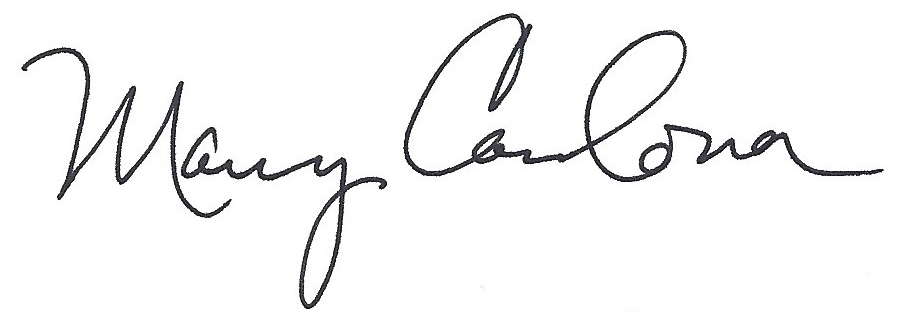 Mary Carlona